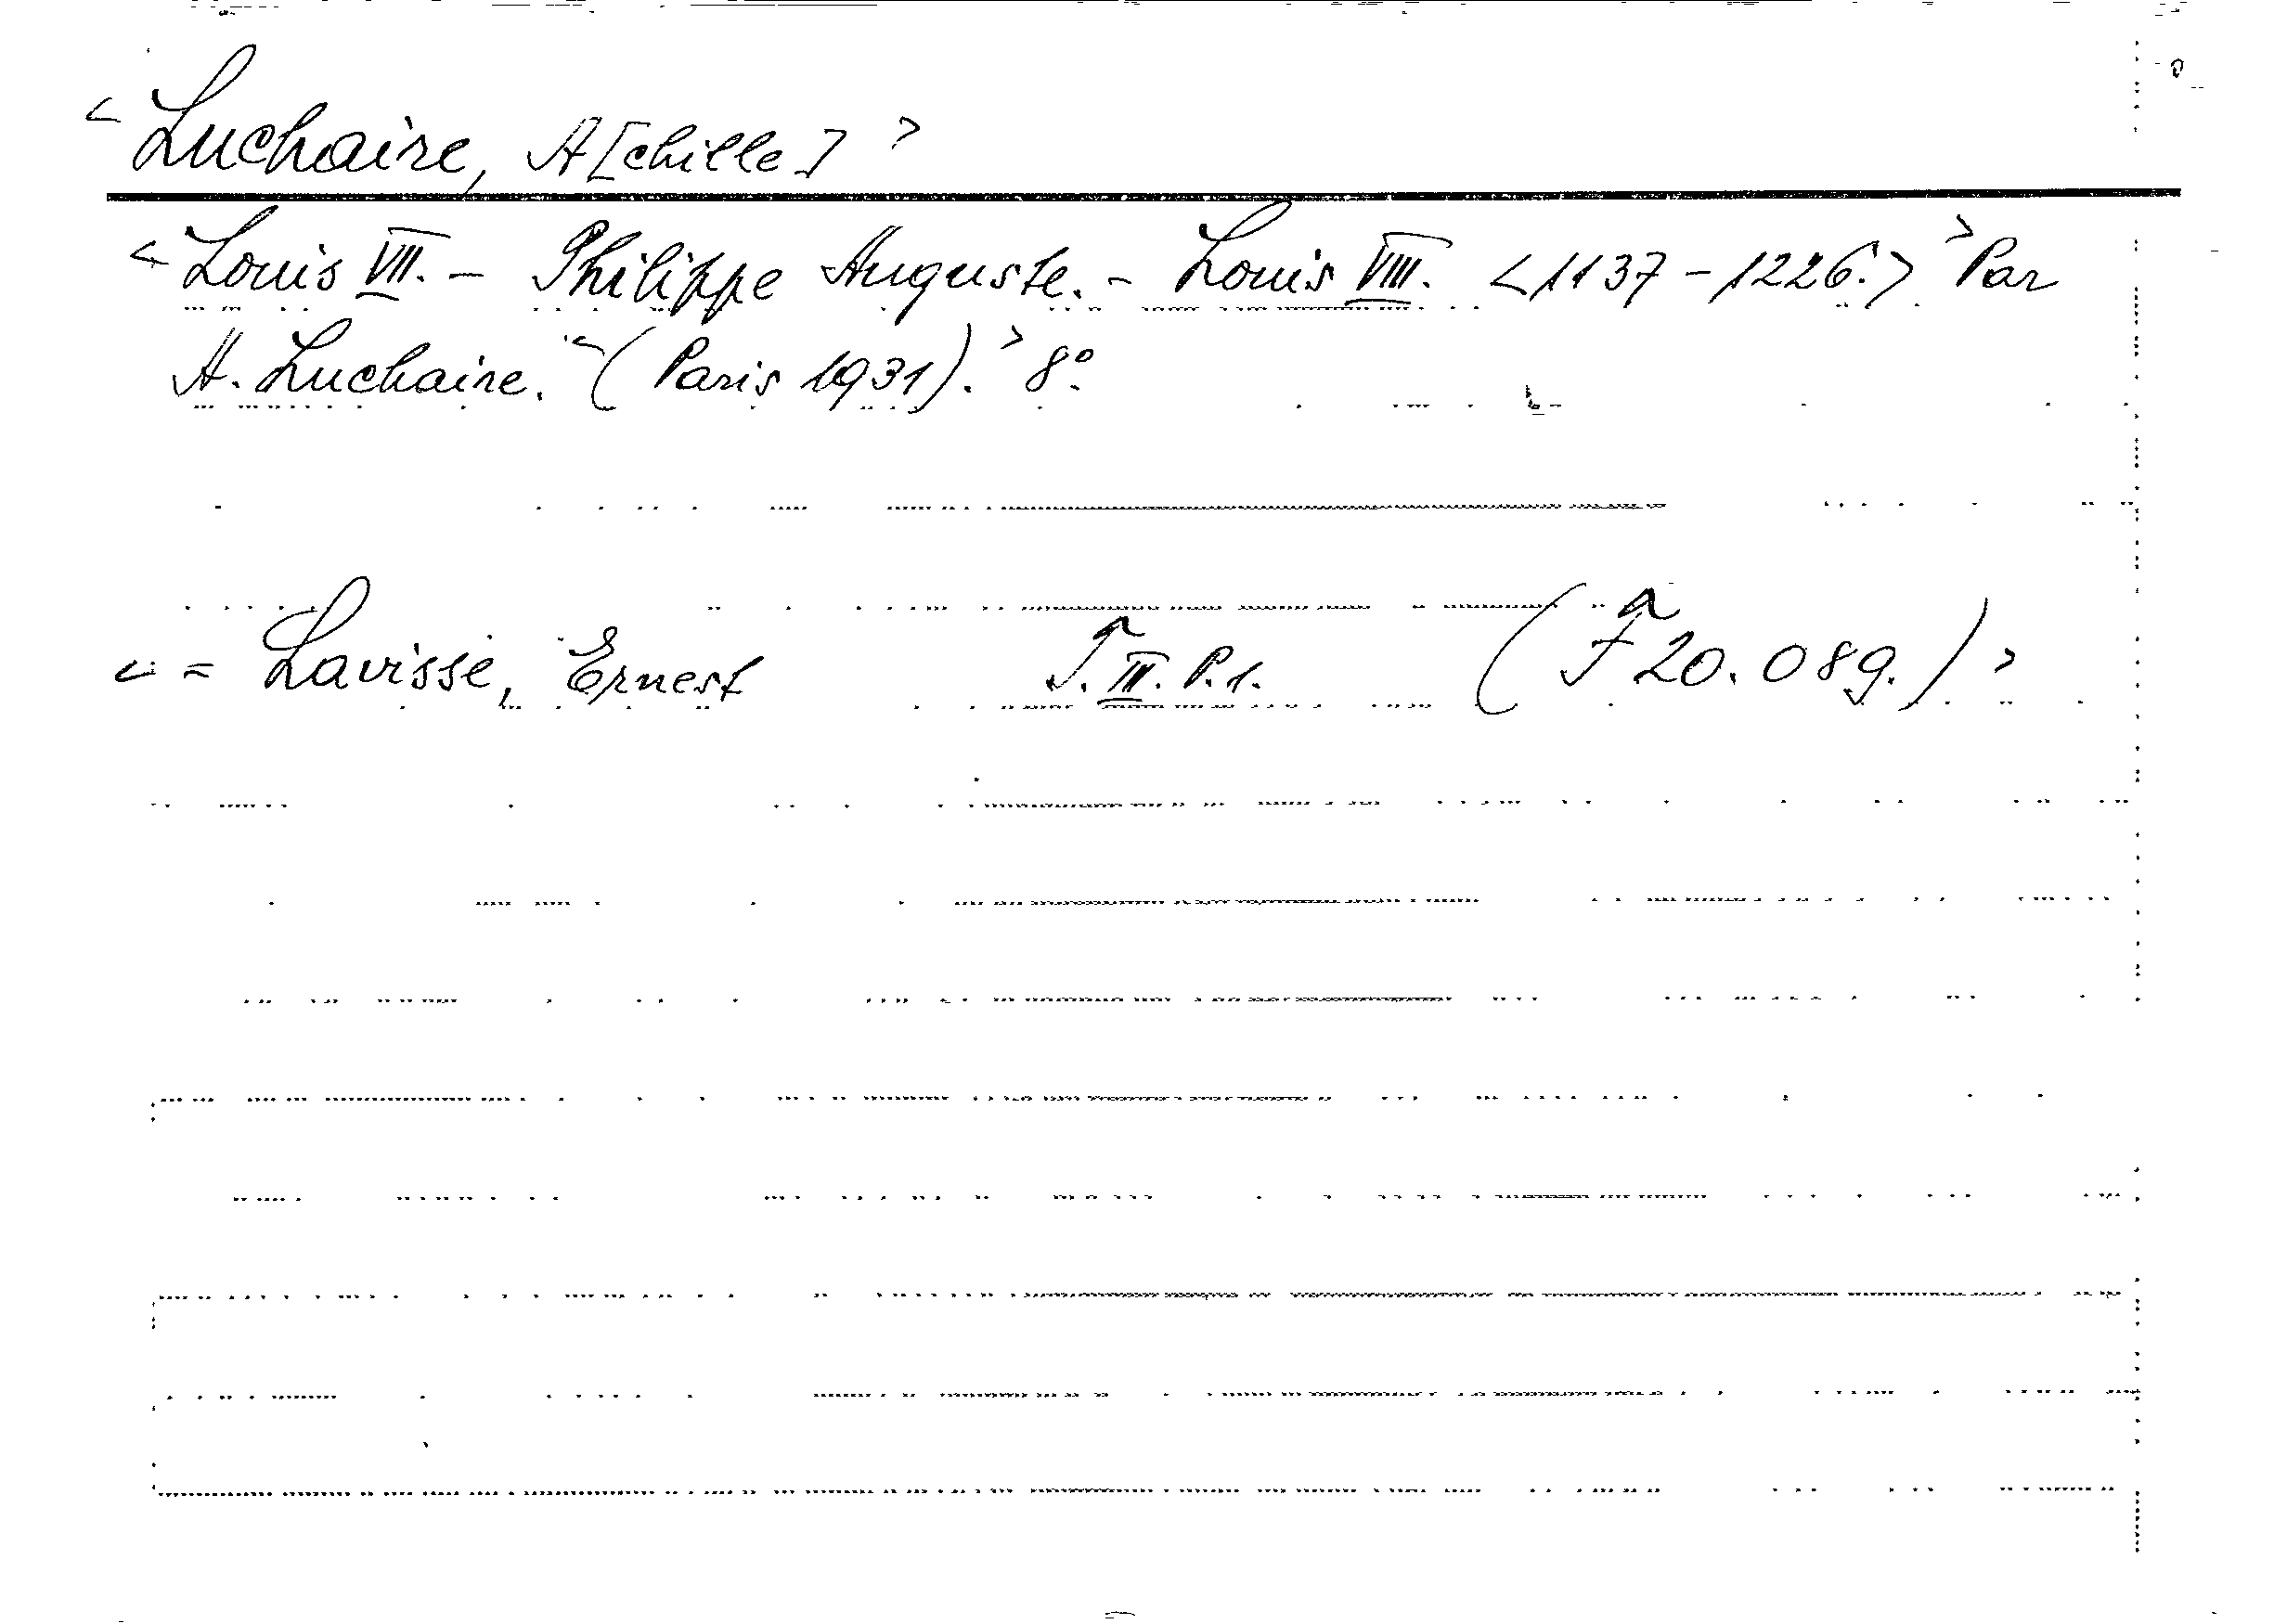 < Luchaire, A[chille] >
< Louis VII. - Philippe Auguste. - Louis VIII. <1137 - 1226.> > Par
A. Luchaire. < (Paris 1931). > 8º.
< = Lavisse, Ernest T. III. P. 1. (F 20.089.) >